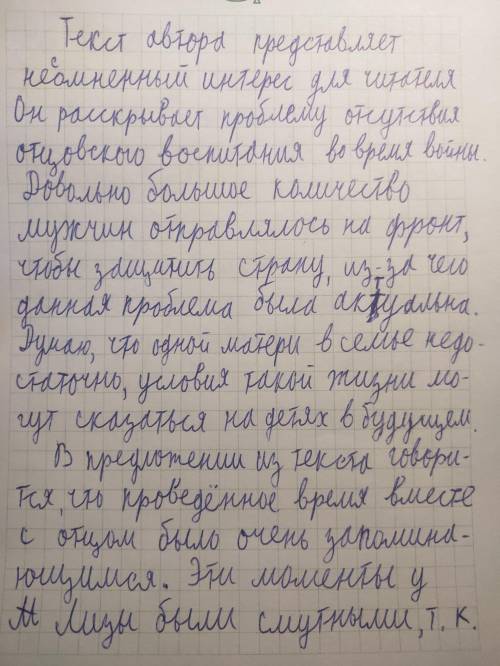 Текст автора представляет
несомненный интерес для читателя
Он расскрывает проблему отсутствия
отцовского воспитания во время войны.
Довольно большое количество
мужчин отправлялось на фронт,
чтобы защитить страну, из-за чего
данная проблема была актуальна.
Думаю, что одной матери в семье недо-
статочно, условия такой жизни мо-
гут сказаться на детях в будущем.
В предложении из текста говори-
тся, что проведённое время вместе
с отцом было очень запомина-
ющимся. Эти моменты у
Лизы были смутными, т. к.